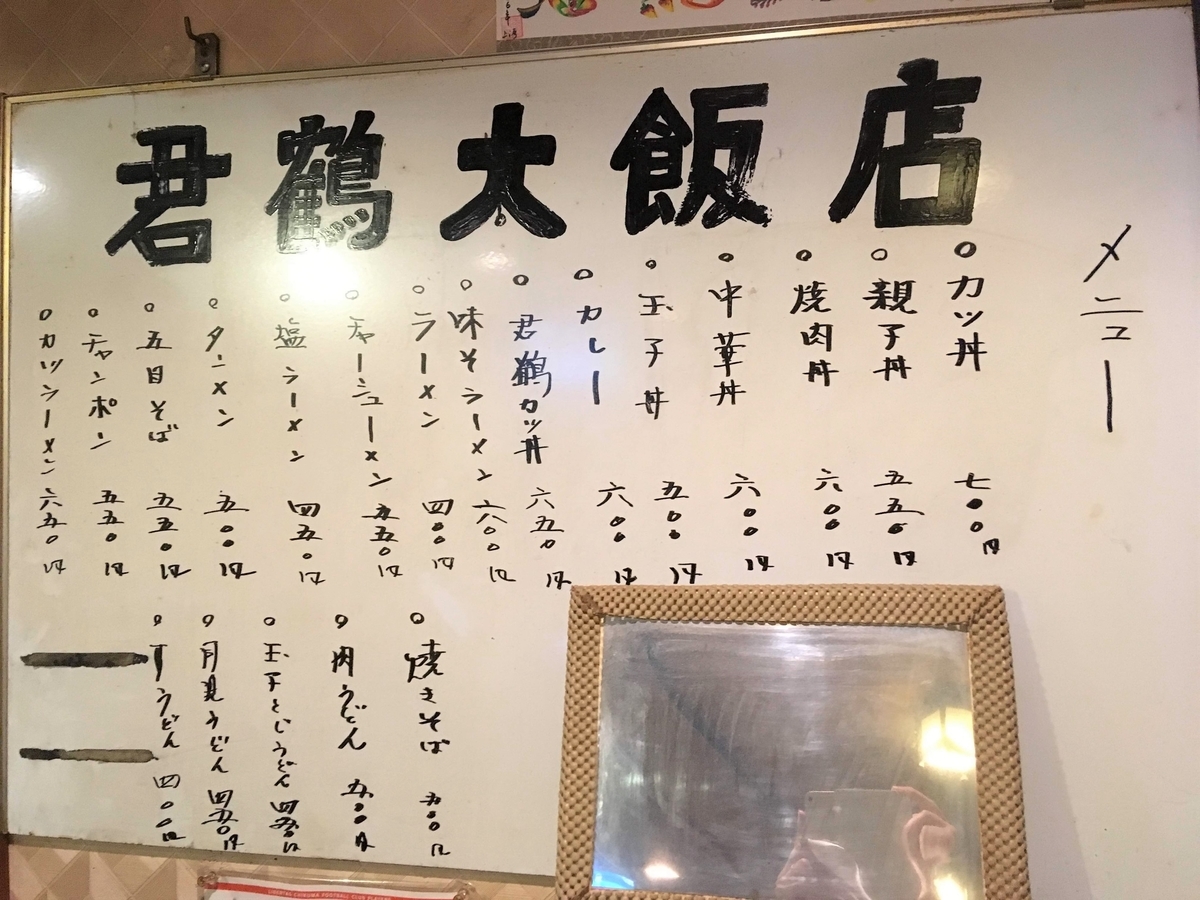 君鶴大飯店
メニュー
カツ丼 七〇〇円
親子丼 五五〇円
焼肉丼 六〇〇円
中華丼 六〇〇円
玉子丼 五〇〇円
カレー 六〇〇円
君鶴カツ丼 六五〇円
味そラーメン 六〇〇円
ラーメン 四〇〇円
チャーシューメン 五五〇円
塩ラーメン 四五〇円
タンメン 五〇〇円
五目そば 五五〇円
チャンポン 五五〇円
カツラーメン 六五〇円
焼きそば 五〇〇円
肉うどん 五〇〇円
玉子とじうどん 四五〇円
月見うどん 四五〇円
うどん 四〇〇円